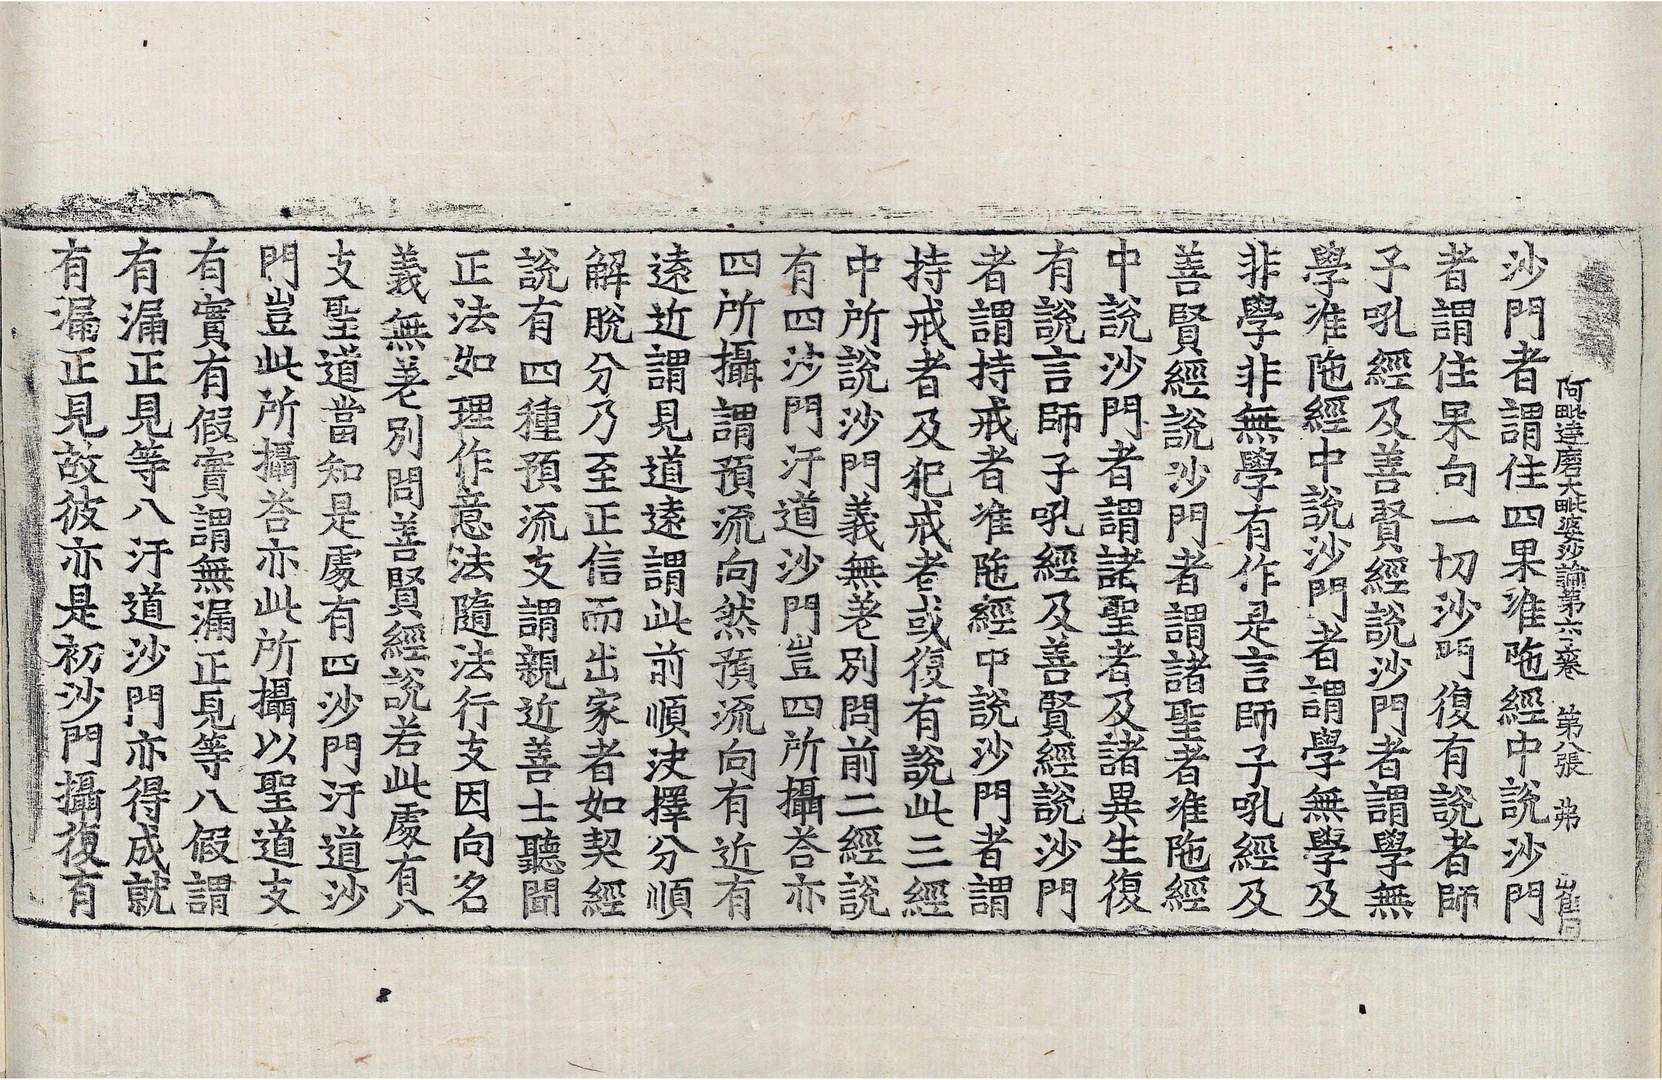 阿毗達磨大毗婆沙論第六六卷 第八張 弗
沙門者謂住四果准陁經中說沙門
者謂住果句一切沙門復有說者師
子吼經及善賢經說沙門者謂學無
學准陁經中說沙門者謂學無學及
非學非無學有作是言師子吼經及
善賢經說沙門者謂諸聖者准陁經
中說沙門者謂諸聖者及諸異生復
有說言師子吼經及善賢經說沙門
者謂持戒者准陁經中說沙門者謂
持戒者及犯戒者或復有說此三經
中所說沙門義無差別問前二經說
有四沙門汙道沙門豈四所攝荅亦
四所攝謂預流向然預流向有近有
遠近謂見道遠謂此前順決擇分順
解脫分乃至正信而出家者如契經
說有四種預流支謂親近善士聽聞
正法如理作意法隨法行支因向名
義無差別問善賢經說若此處有八
支聖道當知是處有四沙門汙道沙
門豈此所攝荅亦此所攝以聖道支
有實有假實謂無漏正見等八假謂
有漏正見等八汙道沙門亦得成就
有漏正見故彼亦是初沙門攝復有